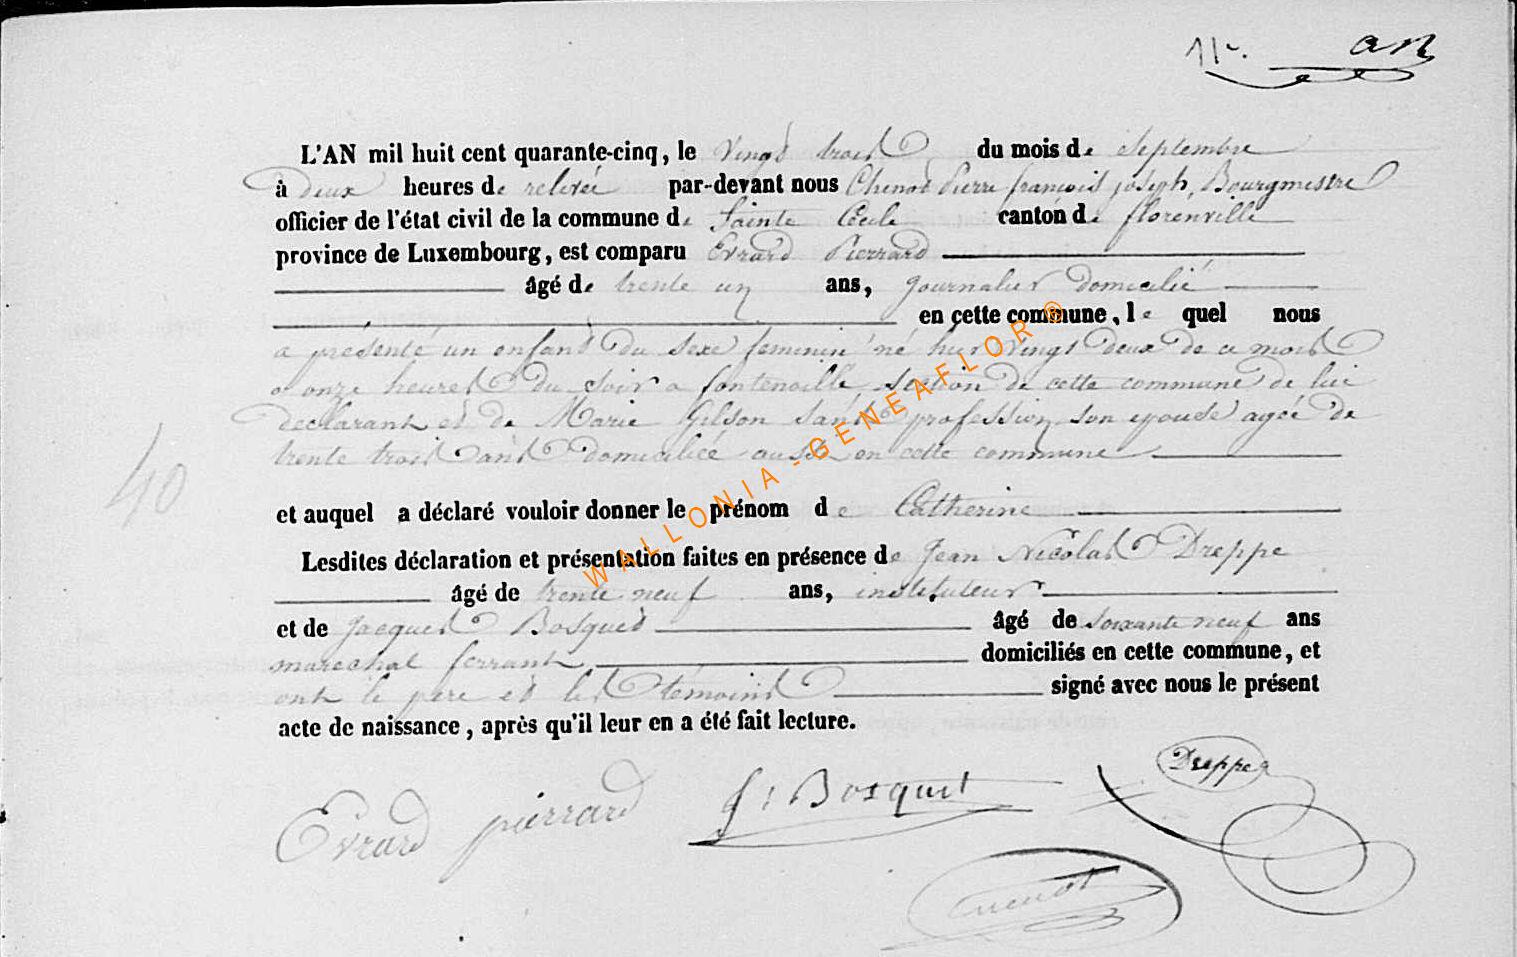 11e. an
L'AN mil huit cent quarante-cinq, le Vingt trois du mois de Septembre
à deux heures de relevée par-devant nous Chenot Pierre françois joseph, Bourgmestre
officier de l'état civil de la commune de Sainte Cécile canton de florenville
province de Luxembourg, est comparu Evrard Pierrard
âgé de trente un ans, journalier domicilié
en cette commune, le quel nous
a présenté un enfant du sexe feminin né hier Vingt deux de ce mois
a onze heures du soir a fontenoille section de cette commune de lui
declarant et de Marie Gilson sans profession son epouse agée de
trente trois ans domiciliée aussi en cette commune
40
et auquel a déclaré vouloir donner le prénom de Catherine
Lesdites déclaration et présentation faites en présence de Jean Nicolas Dreppe
âgé de trente neuf ans, instituteur
et de Jacques Bosquet âgé de soixante neuf ans
marechal ferrant domiciliés en cette commune, et
ont le père et les témoins signé avec nous le présent
acte de naissance, après qu'il leur en a été fait lecture.
Dreppe
Evrard pierrard J: Bosquet
Chenot
WALLONIA - GENEAFLOR ®